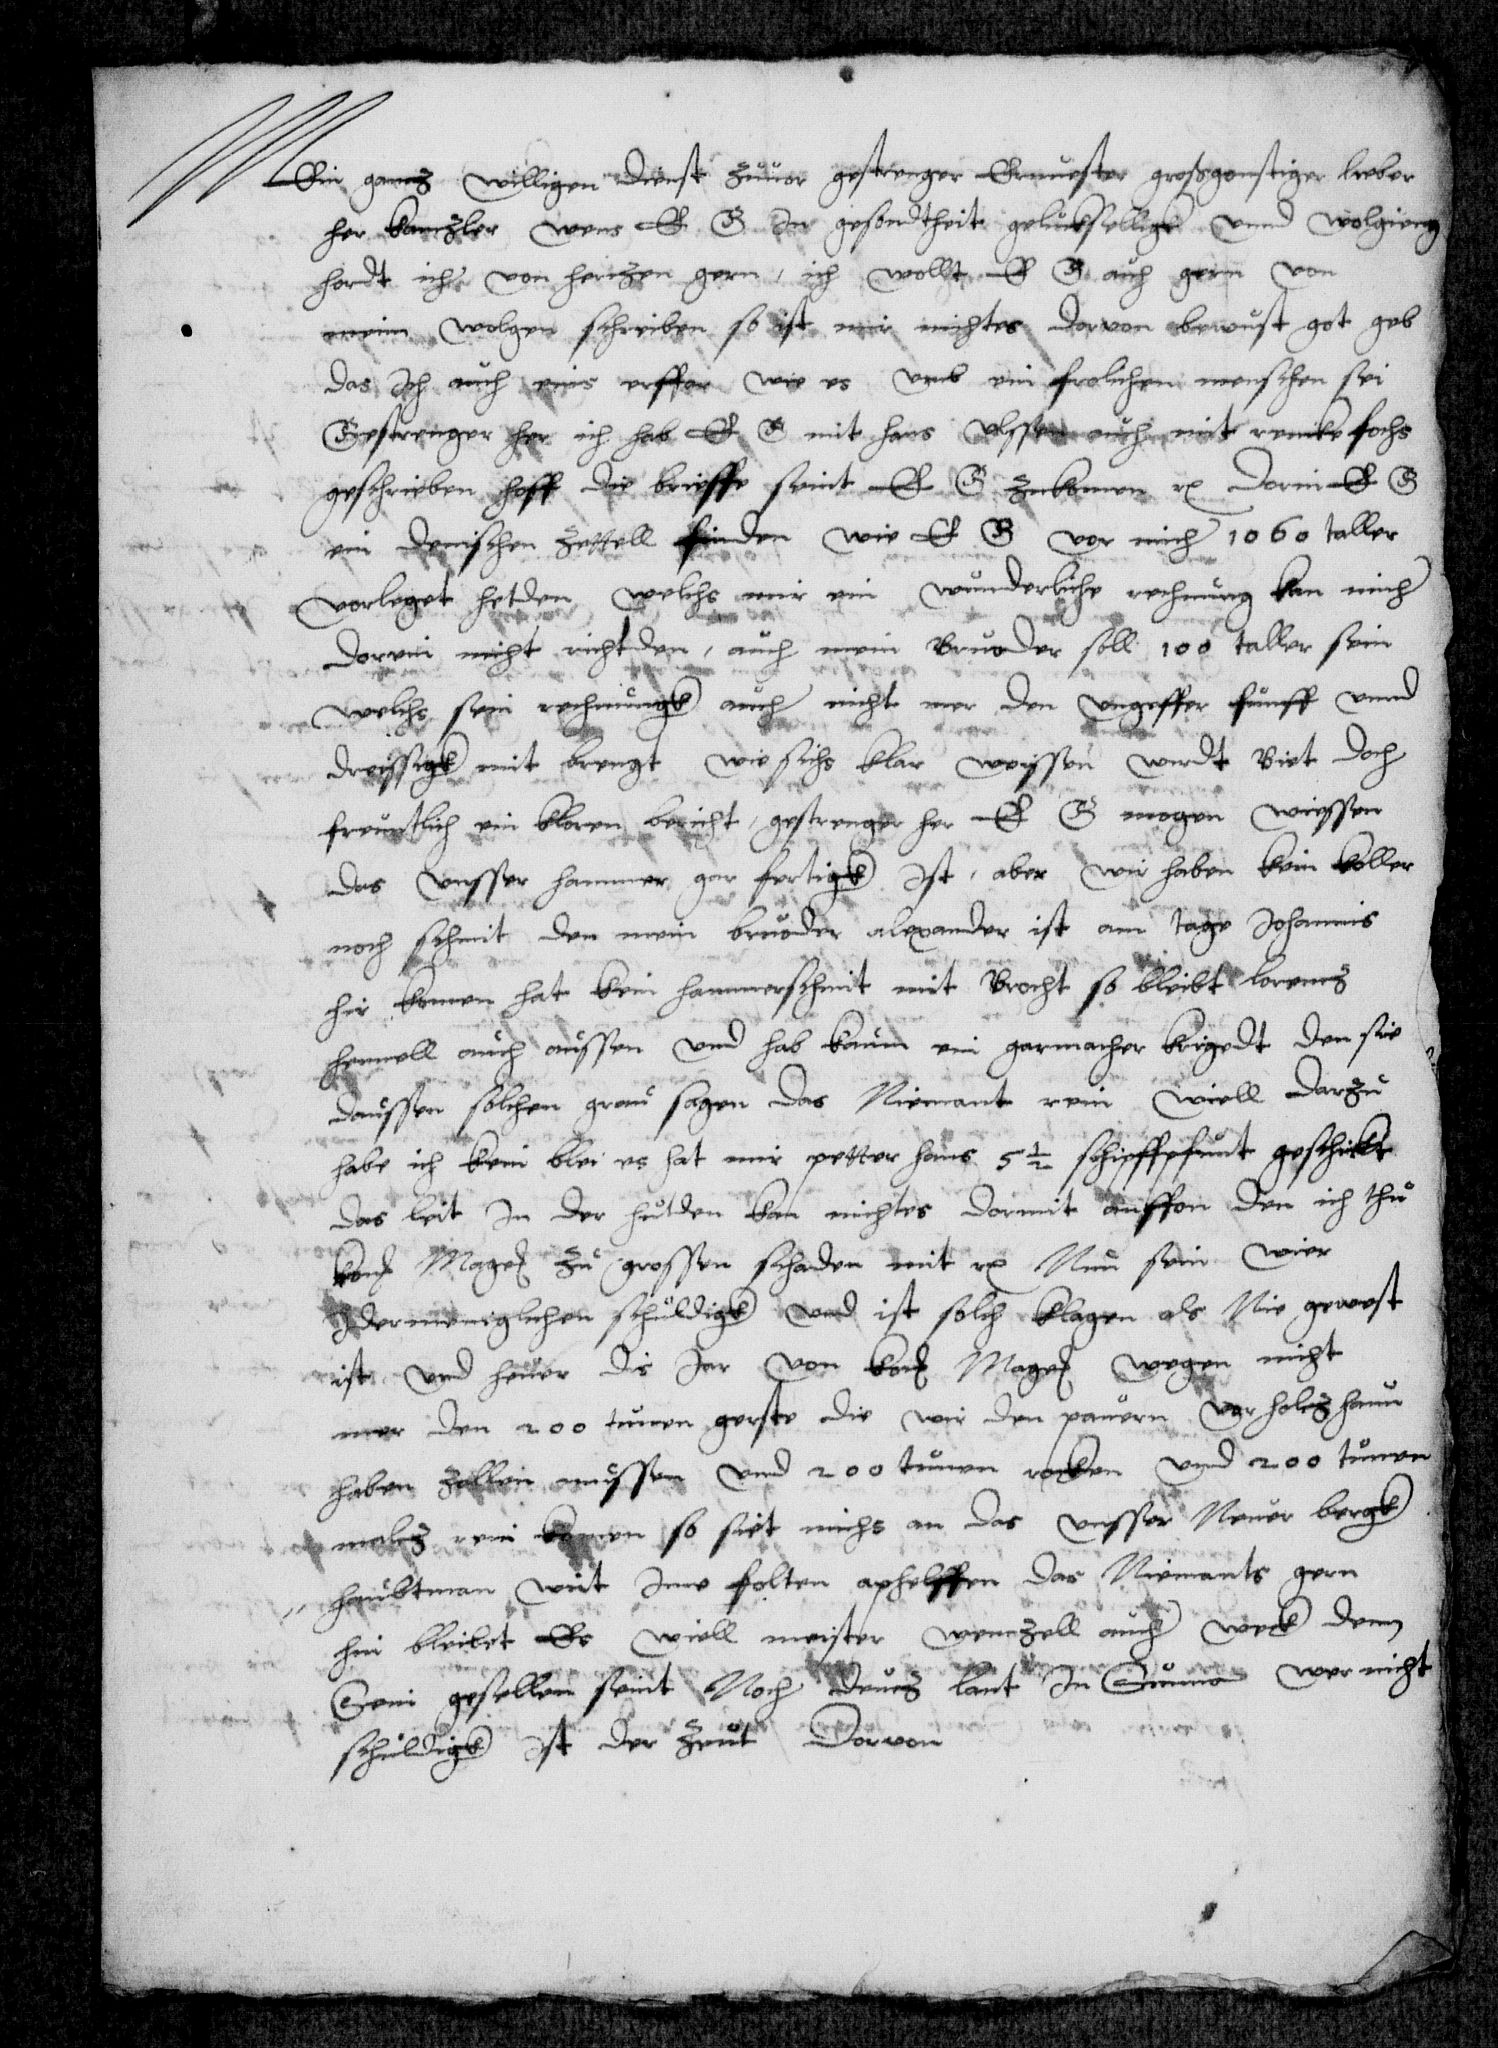 Mein gancz willigen dienst zuuor gestrenger Ernuester grosgonstiger lieber
her kanczler wens E G In gesondtheit gelukselligk vnnd wolgieng
hordt ich von herczen gern, ich wollt E G auch gern von
meim wolgen schreiben so ist mir nichtes dorvon bewust got geb
das Ich auch eins erffar wie es vmb ein frolichen menschen sei
Gestrenger her ich hab E G mit hans olssen auch mit reinke fochs
geschrieben hoff die brieffe seint E G zukomen rx dorin E G
ein denischen zettell finden wie E G vor mich 1060 taller
vorleget hetden welchs mir ein wunderliche rechnung kan mich
dorein nicht richtden, auch mein Bruoder soll 100 taller sein
welchs sein rechnungk auch nicht mer den vngeffer funff vnnd
dreissigk mit brengt wie sichs klar weissen werdt Biet doch
freuntlich ein kloren bericht, gestrenger her E G mogen wiessen
das vnsser hammer gar fertigk Ist, aber wir haben kein koller
noch schmit den mein bruoder alexander ist am tage Johannis
hir komen hat kein hammerschmit mit Brocht so bleibt lorencz
hemell auch aussen vnd hab kaum ein garmacher krigedt den sie
daussen solchen greu sagen das Niemant rein wiell darzu
habe ich kein blei es hat mir petter hans 5 1/2 schipffpfunt geschikt
das leit In der hutden kan nichtes dormit anffon den ich thu
kon Mage zu grossen schaden mit rx Nun sein wier
Idermeniglichen schuldigk vnd ist solch klagen als Nie gewest
ist vnd heuer dis Jar von kon Mage wegen nicht
mer den 200 tunen gerste die wir den pauern vor holcz haun
haben zallen mussen vnd 200 tunen rocken vnd 200 tunen
malcz rein komen so siet michs an das vnsser Neuer bergk
haubtman wirt Inne folten ophelffen das Niemants gern
hir bleibet Es wiell meister wenczell auch weck denn
Sein gesellen seint Noch deucz lant In Summa wer nicht
schuldigk Ist der zeut Dorvon